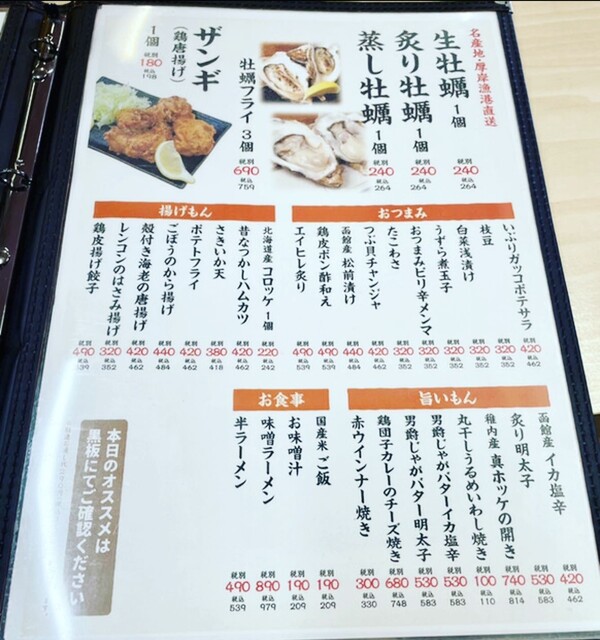 名産地・厚岸漁港直送
生牡蠣 1個
税別
240
税込
264
炙り牡蠣 1個
税別
240
税込
264
蒸し牡蠣 1個
税別
240
税込
264
牡蠣フライ 3個
税別
690
税込
759
ザンギ
(鶏唐揚げ)
1個
税別
180
税込
198
おつまみ
いぶりガッコポテサラ
税別
420
税込
462
枝豆
税別
320
税込
352
白菜浅漬け
税別
320
税込
352
うずら煮玉子
税別
320
税込
352
おつまみピリ辛メンマ
税別
320
税込
352
たこわさ
税別
320
税込
352
つぶ貝チャンジャ
税別
420
税込
462
函館産 松前漬け
税別
440
税込
484
鶏皮ポン酢和え
税別
490
税込
539
エイヒレ炙り
税別
490
税込
539
揚げもん
北海道産 コロッケ 1個
税別
220
税込
242
昔なつかしハムカツ
税別
420
税込
462
さきいか天
税別
380
税込
418
ポテトフライ
税別
420
税込
462
ごぼうのから揚げ
税別
440
税込
484
殻付き海老の唐揚げ
税別
420
税込
462
レンコンのはさみ揚げ
税別
320
税込
352
鶏皮揚げ餃子
税別
490
税込
539
旨いもん
函館産 イカ塩辛
税別
420
税込
462
炙り明太子
税別
530
税込
583
稚内産 真ホッケの開き
税別
740
税込
814
丸干しうるめいわし焼き
税別
100
税込
110
男爵じゃがバターイカ塩辛
税別
530
税込
583
男爵じゃがバター明太子
税別
530
税込
583
鶏団子カレーのチーズ焼き
税別
680
税込
748
赤ウインナー焼き
税別
300
税込
330
お食事
国産米 ご飯
税別
190
税込
209
お味噌汁
税別
190
税込
209
味噌ラーメン
税別
890
税込
979
半ラーメン
税別
490
税込
539
本日のオススメは
黒板にてご確認ください